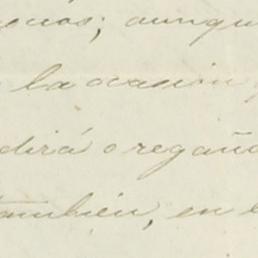 ; aunqu
la ocasion
dirá o regaña
también, en e